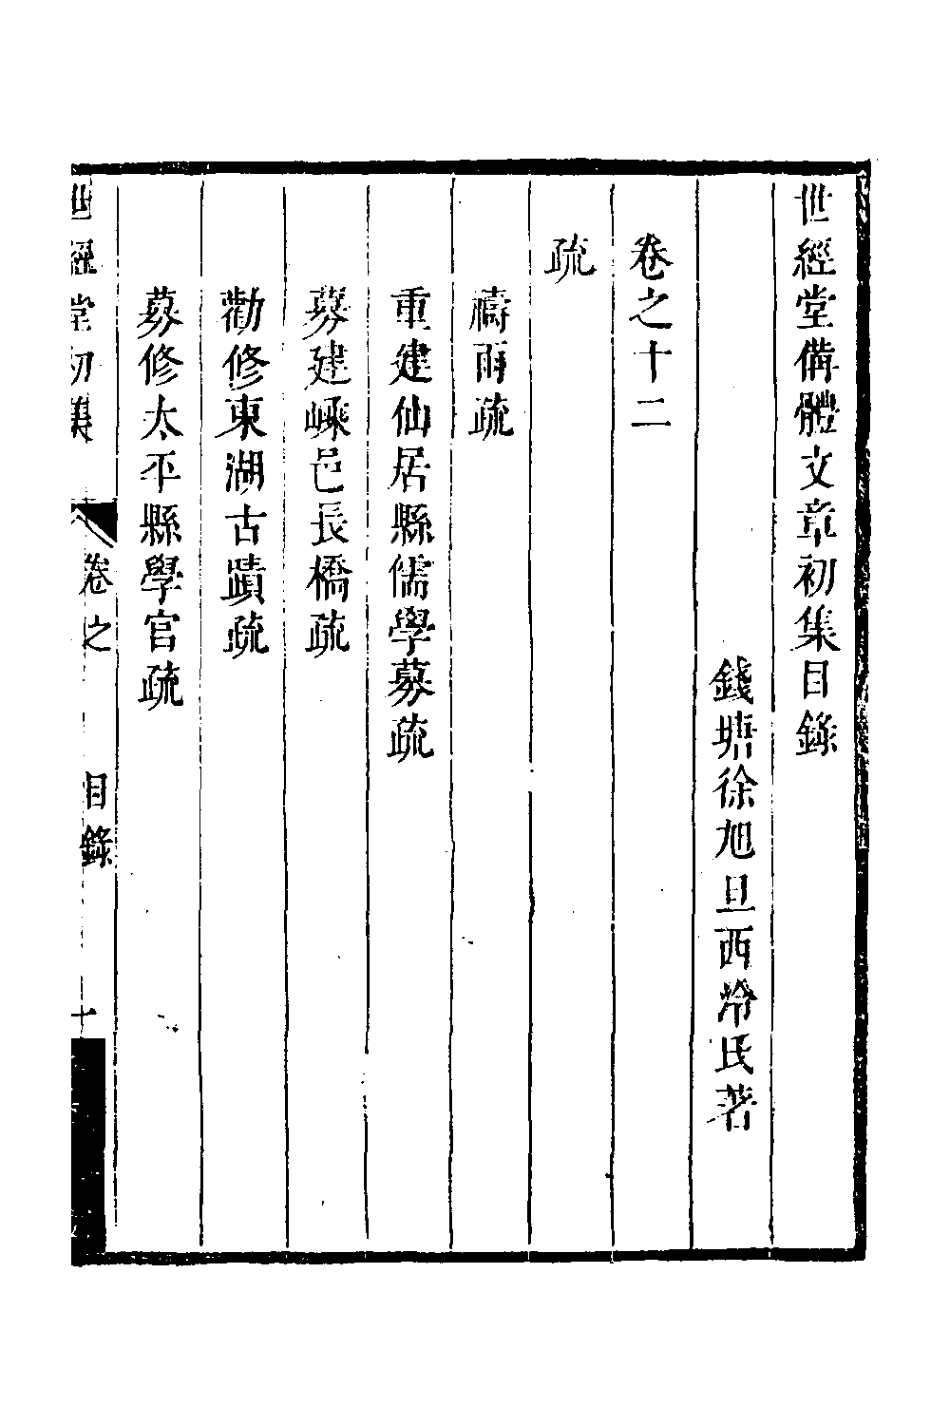 世經堂備體文章初集目錄
錢塘徐旭旦西泠氏著
卷之十二
疏
禱雨疏
重建仙居縣儒學募疏
募建嵊邑長橋疏
勸修東湖古蹟疏
募修太平縣學宮疏
世經堂初集 卷之 目錄 一